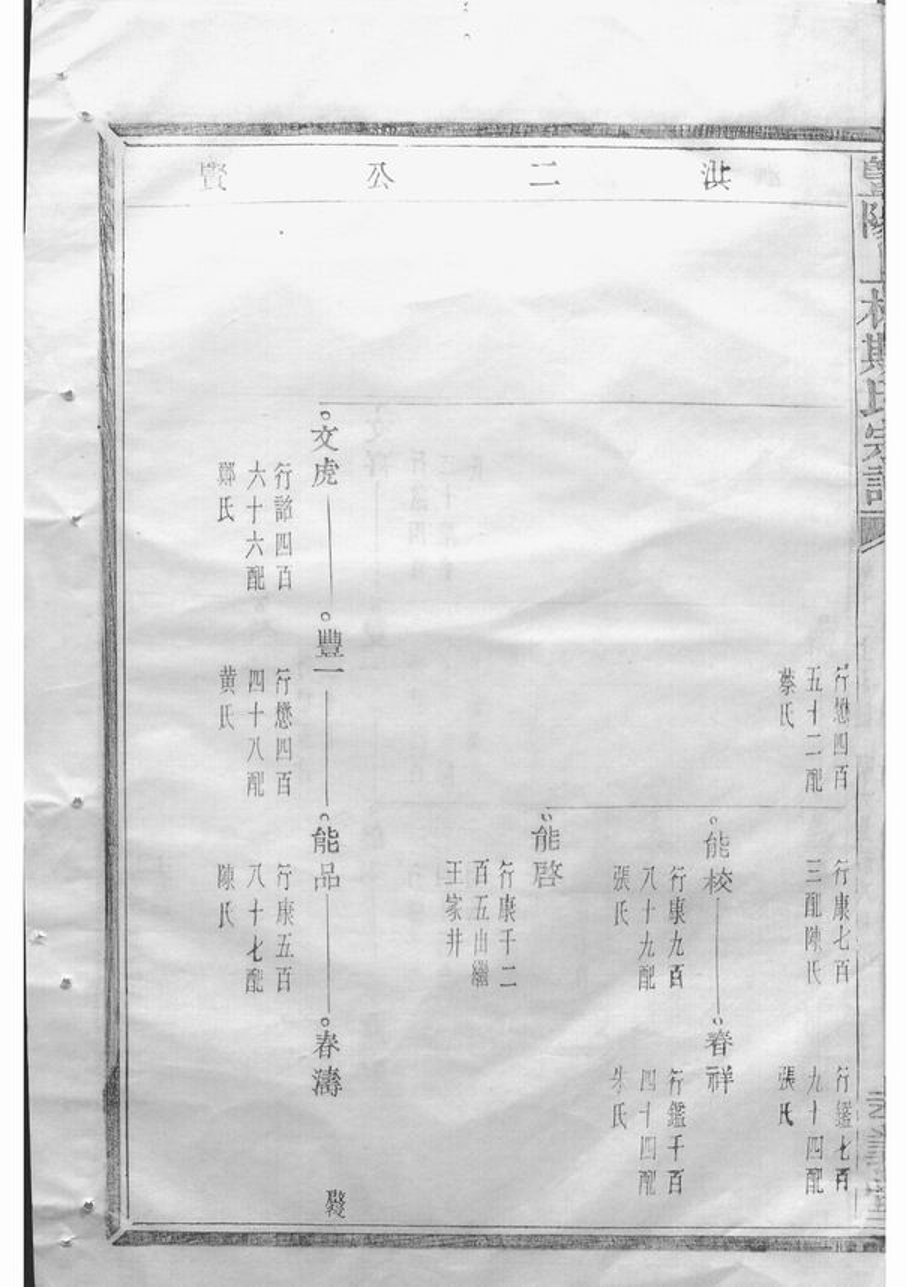 暨陽上林斯氏宗譜
洪二公賢
行懋四百
五十二配
蔡氏
行康七百
三配陳氏
行鑑七百
九十四配
張氏
能校
行康九百
八十九配
張氏
春祥
行鑑千百
四十四配
朱氏
能啓
行康千二
百五出繼
王家井
文虎
行諮四百
六十六配
鄭氏
豐一
行懋四百
四十八配
黄氏
能品
行康五百
八十七配
陳氏
春濤